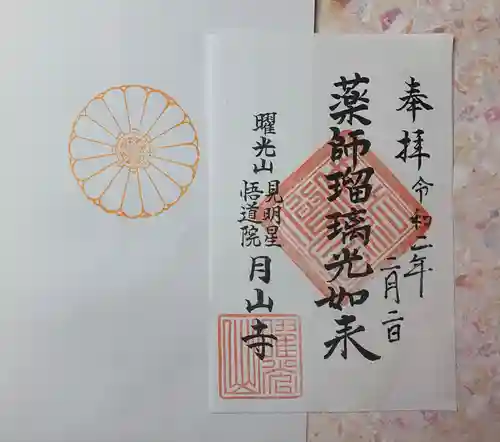 奉拝
令和二年
二月二日
薬師瑠璃光如来
曜光山
見明星
悟道院
月山寺